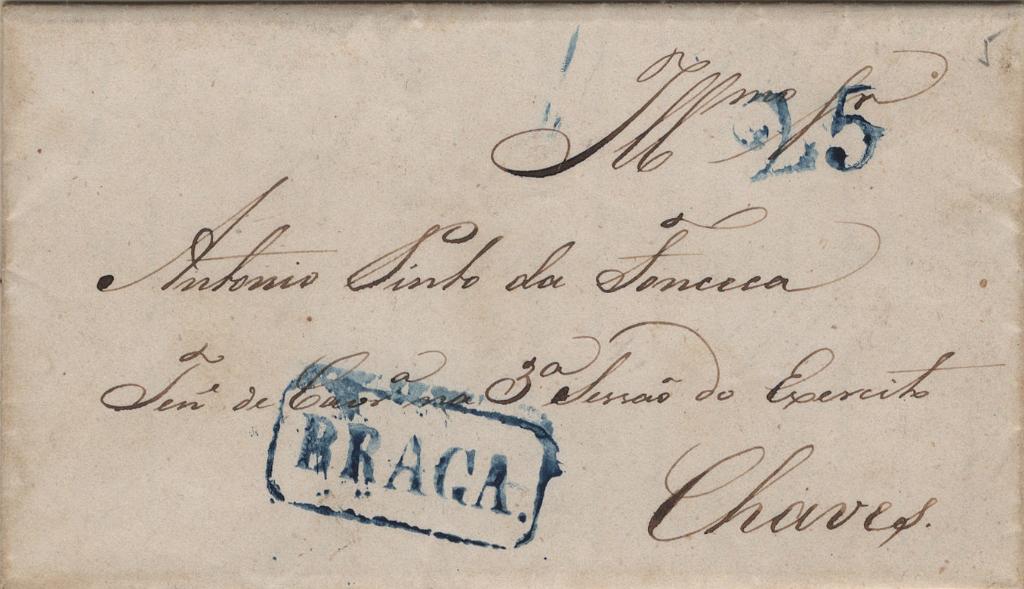 5
Illmo Sr
25
Antonio Pinto da Fonceca
Tene de Cavª na 3ª Sessão do Exercito
BRAGA.
Chaves.